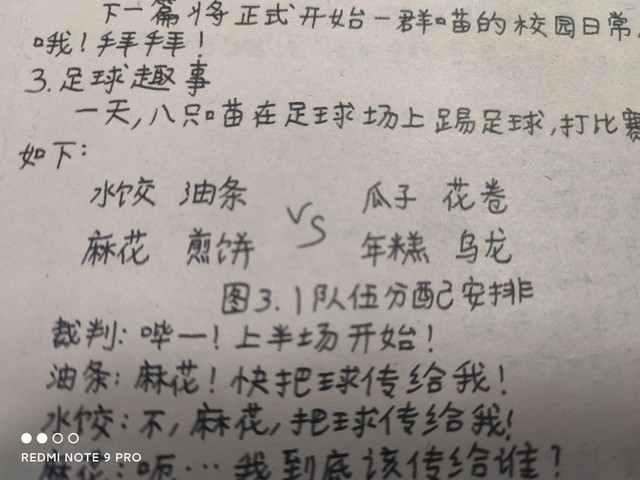 下一篇将正式开始一群喵的校园日常,
哦!拜拜!
3.足球趣事
一天,八只喵在足球场上踢足球,打比赛
如下:
水饺 油条 VS 瓜子 花卷
麻花 煎饼 年糕 乌龙
图3.1队伍分配安排
裁判:哔一!上半场开始!
油条:麻花!快把球传给我!
水饺:不,麻花,把球传给我!
麻花:呃…我到底该传给谁?
REDMI NOTE 9 PRO